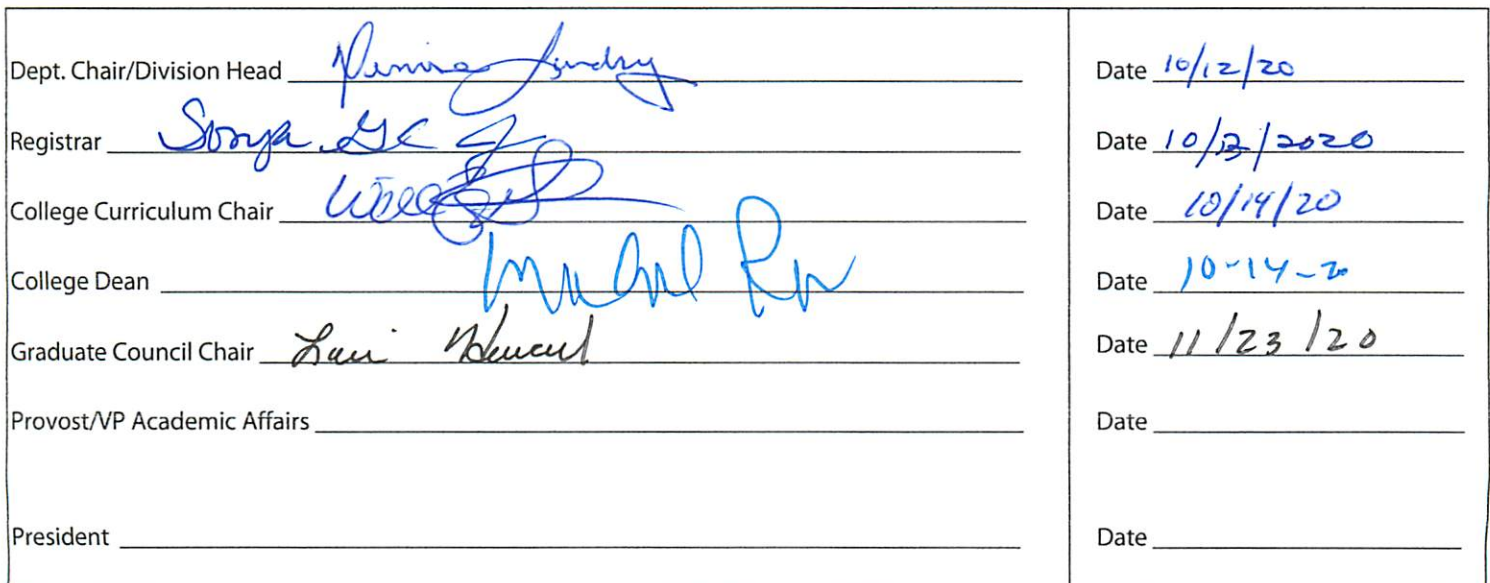 Dept. Chair/Division Head Date 10/12/20
Registrar Sonya Date 10/13/2020
College Curriculum Chair Date 10/14/20
College Dean Date 10-14-20
Graduate Council Chair Lori Date 11/23/20
Provost/VP Academic Affairs Date
President Date